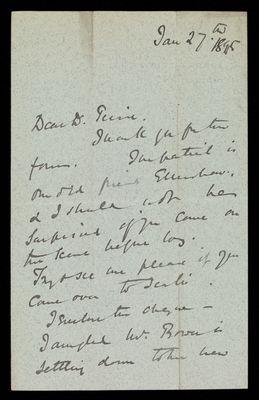 Jan 27th
1895
Dear Dr. 
Thank you for the
forms. The patient is
our old friend
& I should not be
surprised if you came on
the scene before long.
Try & see me please if you
come over to
I enclose the cheque —
I am glad Mr. is
settling down to his new